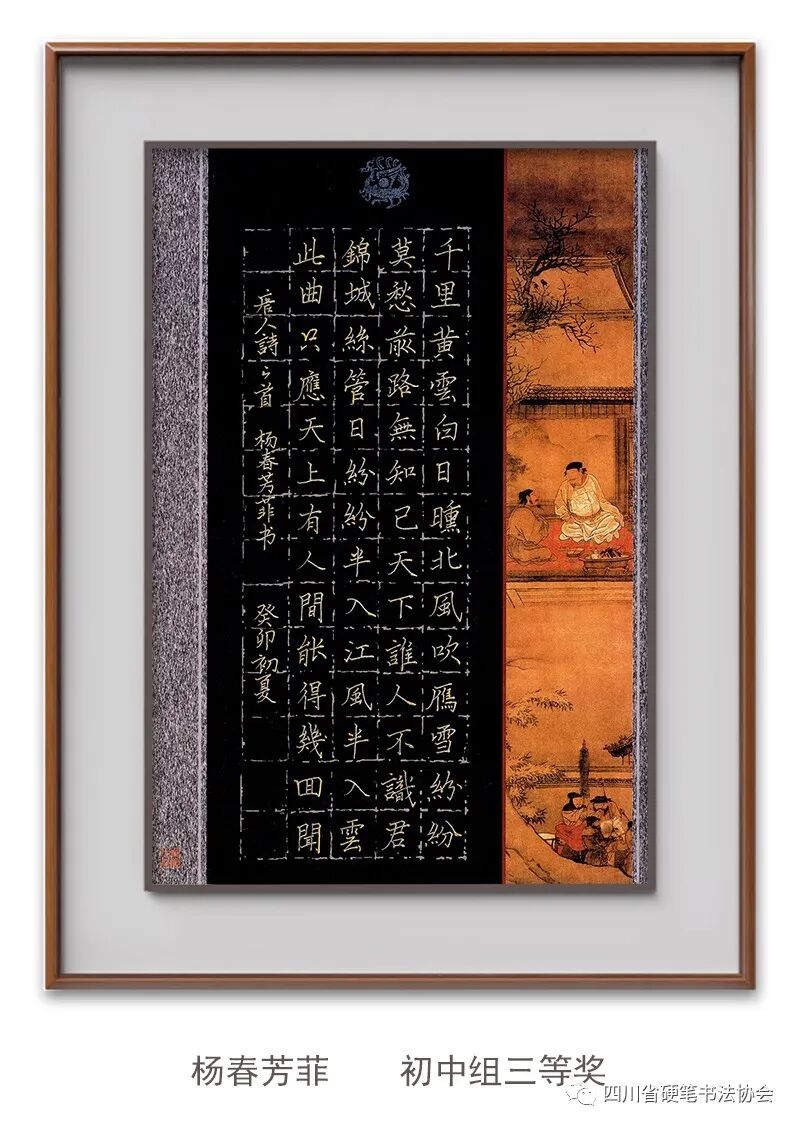 千里黄雲白日曛北風吹雁雪紛紛
莫愁前路無知己天下誰人不識君
錦城絲管日紛紛半入江風半入雲
此曲只應天上有人間能得幾囬聞
唐人詩二首 杨春芳菲书 癸卯初夏
杨春芳菲 初中组三等奖
四川省硬笔书法协会